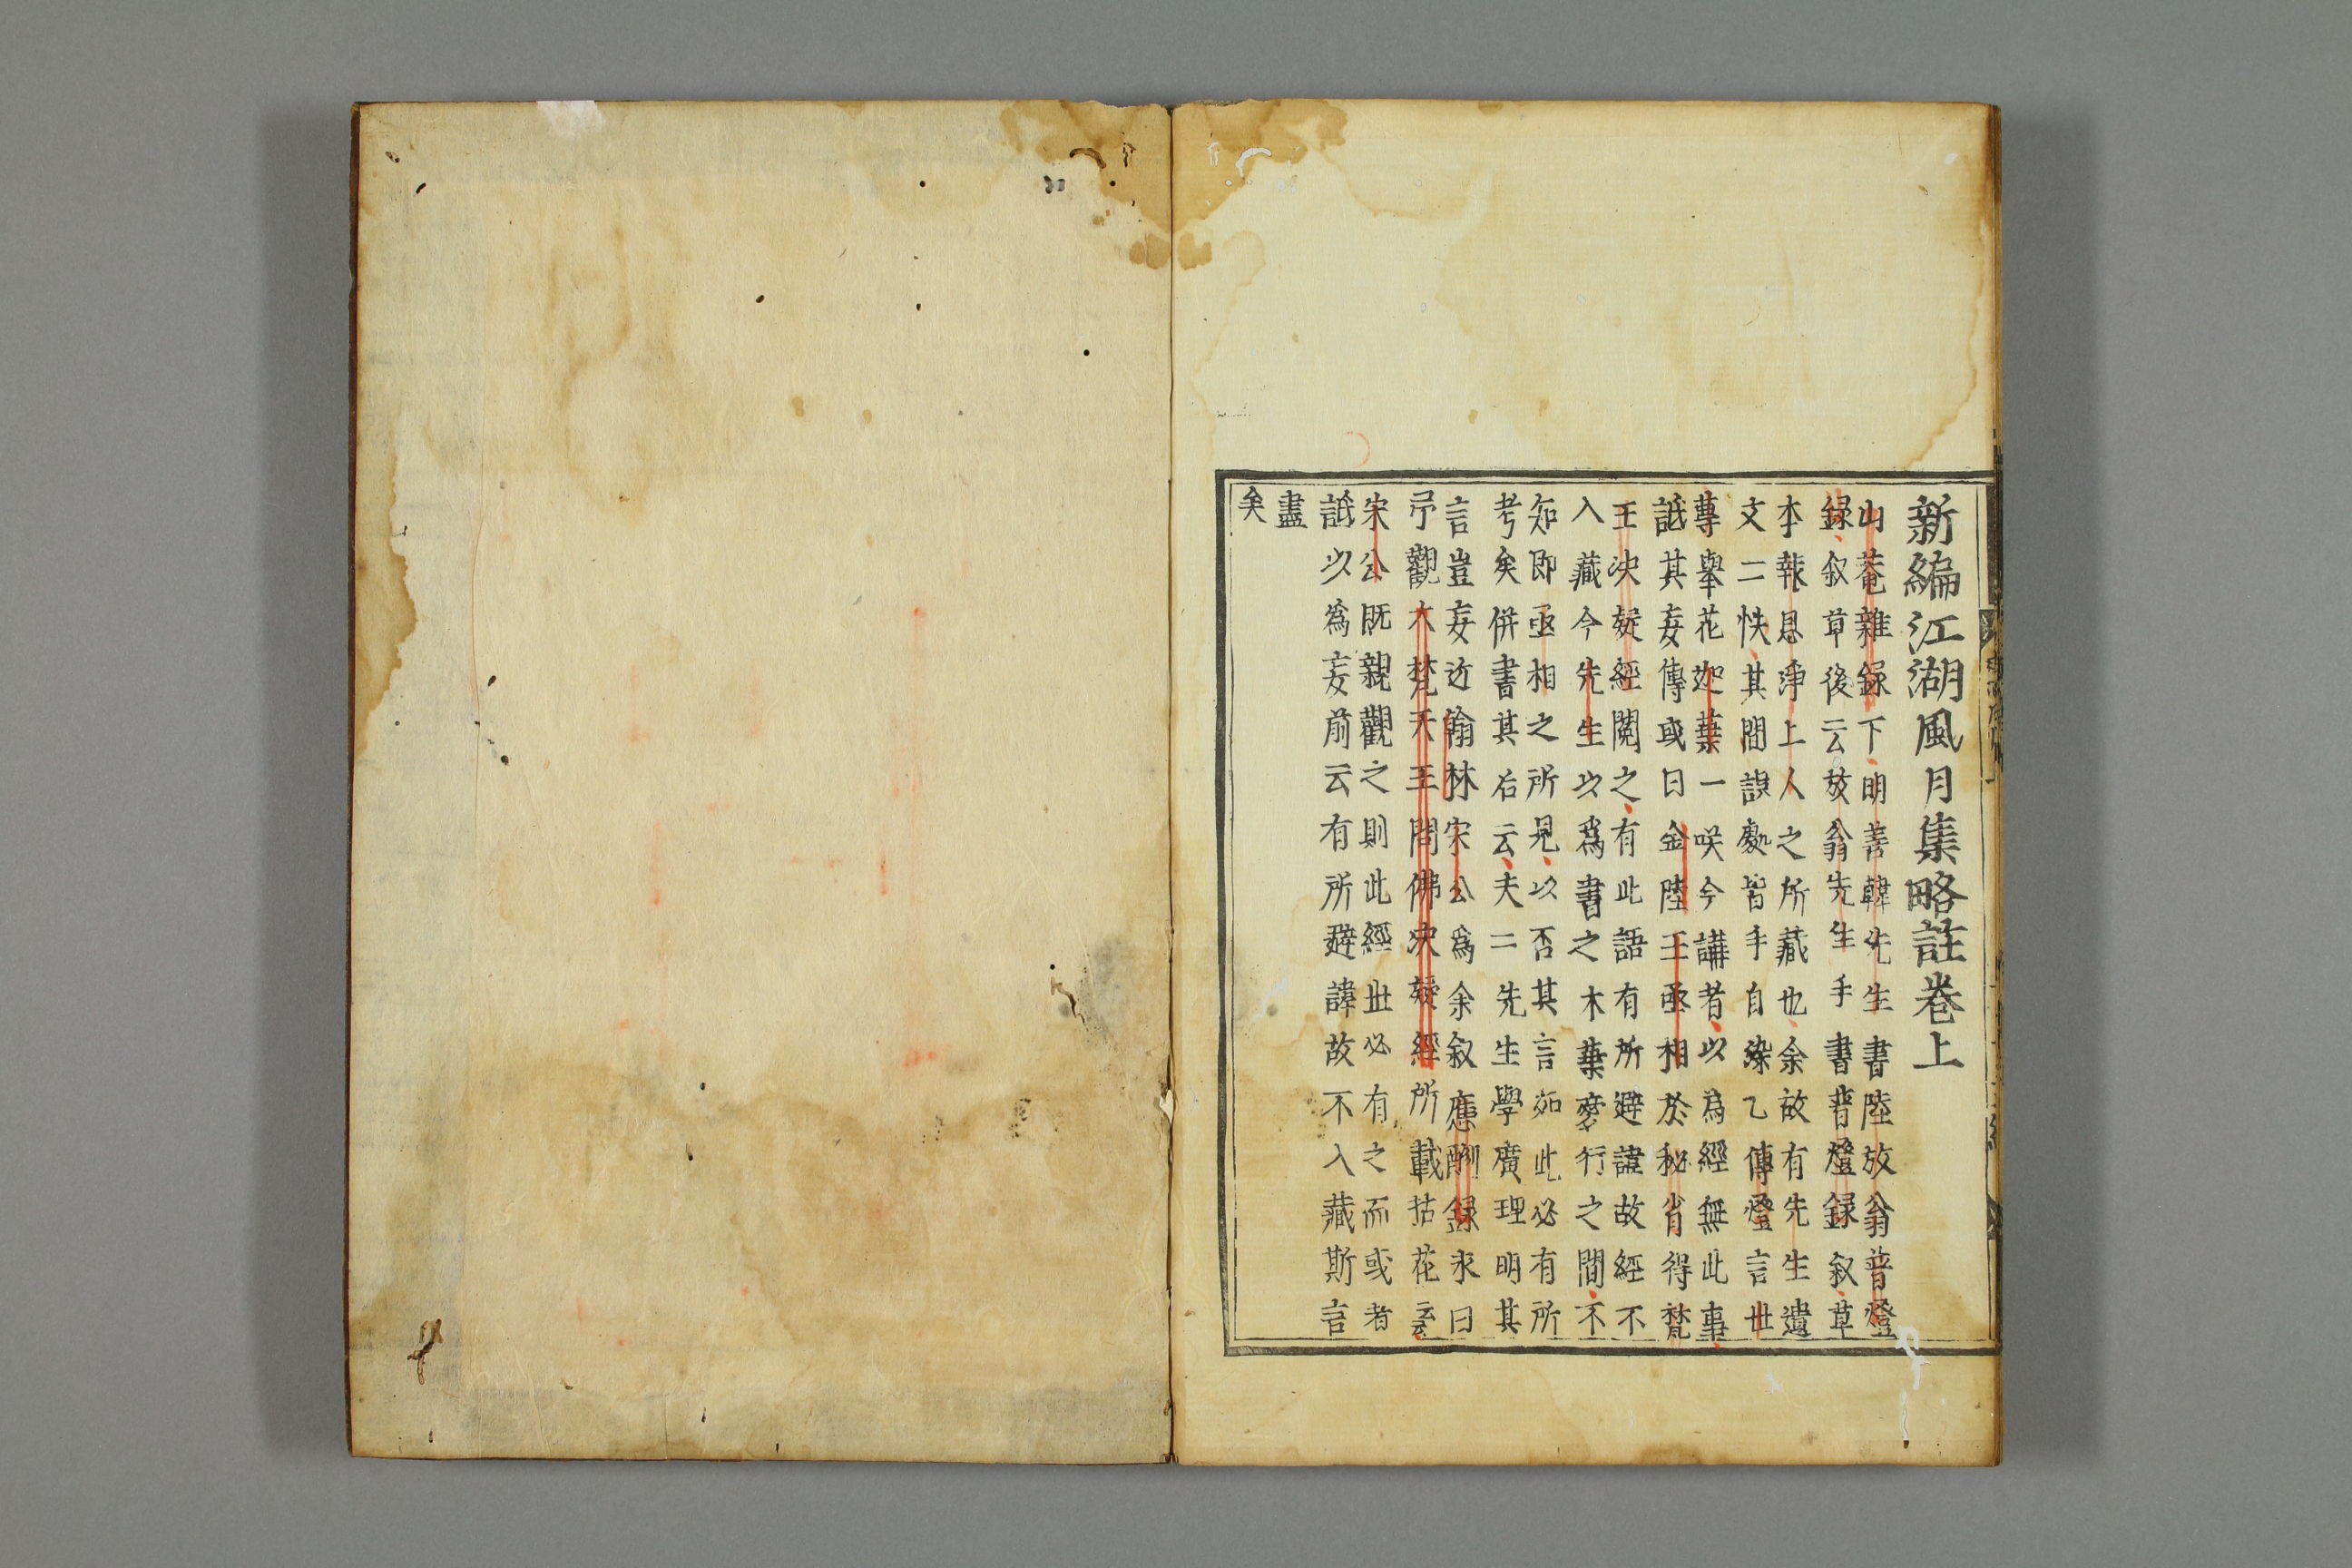 新編江湖風月集略註卷上
山菴雜録下明善韓先生書陸放翁普燈
録叙草後云放翁先生手書普燈録叙草
本報恩淨上人之所藏也余故有先生遺
文二帙其間誤處皆手自染乙傳燈言世
尊舉花迦葉一咲今講者以爲經無此事
詆其妄傳或曰金陵王丞相於秘省得梵
王決疑經閱之有此語有所避諱故經不
入藏今先生以爲書之木葉麥行之間不
知即丞相之所見以否其言如此必有所
考矣併書其右云夫二先生學廣理明其
言豈妄近翰林宋公爲余叙應酬録求曰
予觀大梵天王問佛决疑經所載拈花云云
宋公既親觀之則此經世必有之而或者
詆以爲妄前云有所避諱故不入藏斯言
盡
矣